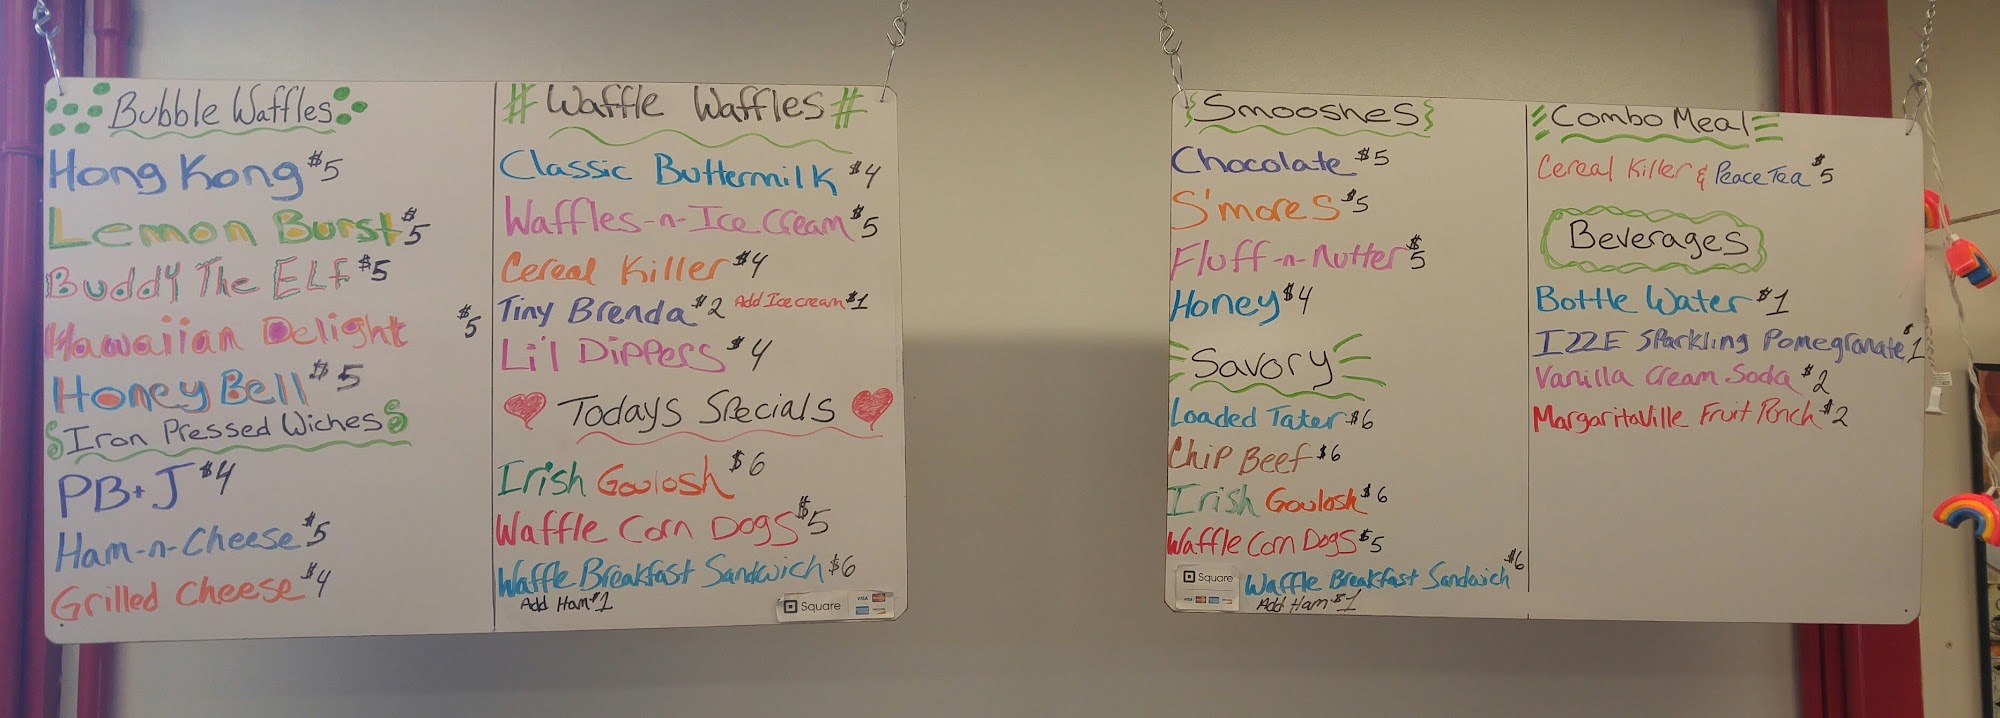 Bubble Waffles
Hong Kong $5
Lemon Burst $5
Buddy The ELF $5
Hawaiian Delight $5
Honey Bell $5
Iron Pressed Wiches
PB+J $4
Ham-n-Cheese $5
Grilled Cheese $4
# Waffle Waffles #
Classic Buttermilk $4
Waffles-n-Ice Cream $5
Cereal Killer $4
Tiny Brenda $2 Add Ice cream $1
Li'l Dippers $4
Todays Specials
Irish Goulosh $6
Waffle Corn Dogs $5
Waffle Breakfast Sandwich $6
Add Ham $1
Square
VISA
Smooshes
Chocolate $5
S'mores $5
Fluff-n-Nutter $5
Honey $4
Savory
Loaded Tater $6
Chip Beef $6
Irish Goulosh $6
Waffle Corn Dogs $5
Waffle Breakfast Sandwich $6
Add Ham $1
Square
VISA
Combo Meal
Cereal Killer & Peace Tea $5
Beverages
Bottle Water $1
IZZE Sparkling Pomegranate $1
Vanilla Cream Soda $2
Margaritaville Fruit Punch $2